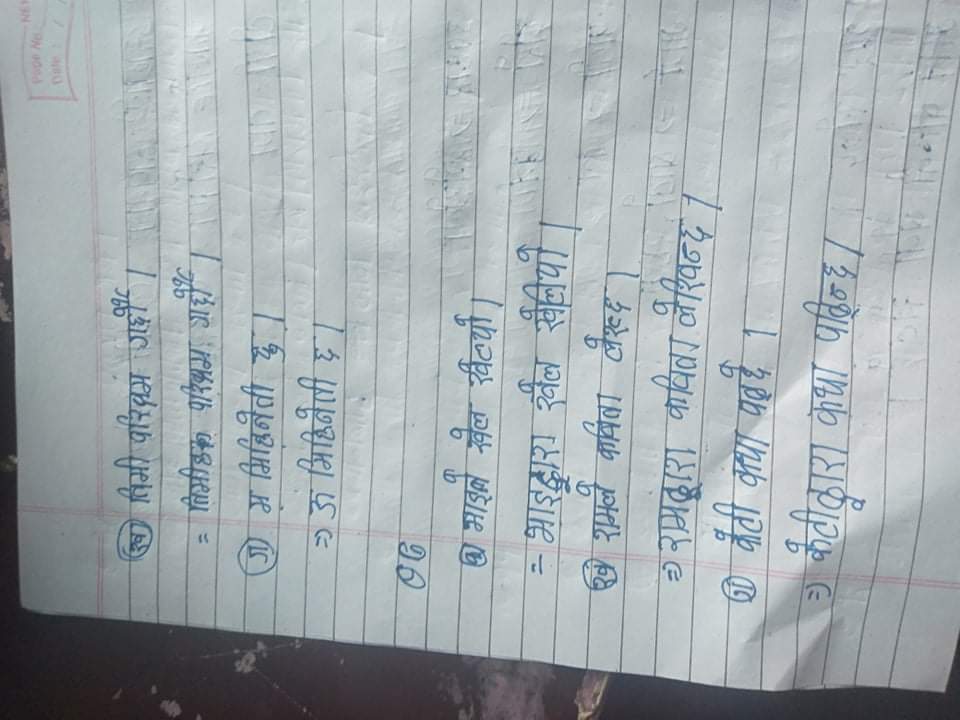 Page No.
Date
(ख) तिमी परिश्रम गर्छौ ।
= तिमीहरू परिश्रम गर्छौ ।
(ग) म मिहिनेती छु ।
⇒ ऊ मिहिनेती छ ।
१६
(क) भाइले खेल खेल्यो ।
= भाइद्वारा खेल खेलियो ।
(ख) रामले कविता लेख्छ ।
⇒ रामद्वारा कविता लेखिन्छ ।
(ग) केटी कथा पढ्छे ।
⇒ केटीद्वारा कथा पढिन्छ ।